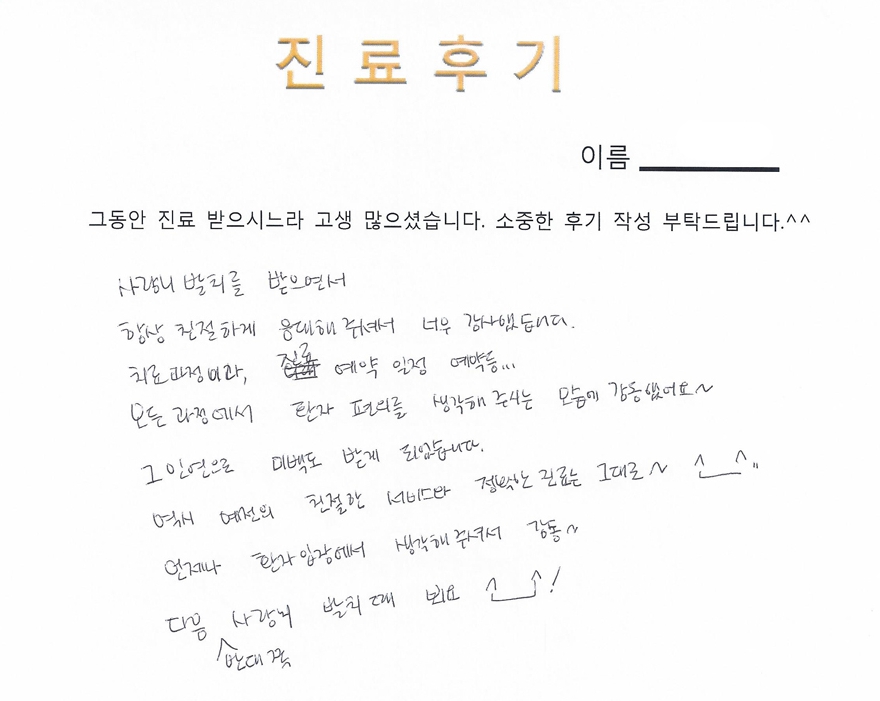 진료후기
이름
그동안 진료 받으시느라 고생 많으셨습니다. 소중한 후기 작성 부탁드립니다.^^
사랑니 발치를 받으면서
항상 친절하게 응대해 주셔서 너무 감사했습니다.
치료과정이라, 진료 예약 일정 예약등...
모든 과정에서 환자 편의를 생각해 주시는 모습에 감동했어요~
그 인연으로 미백도 받게 되었습니다.
역시 예전의 친절한 서비스와 정확한 진료는 그대로~ ^__^"
언제나 환자 입장에서 생각해 주셔서 감동~
다음 사랑니 발치 때 봬요 ^__^!
반대쪽